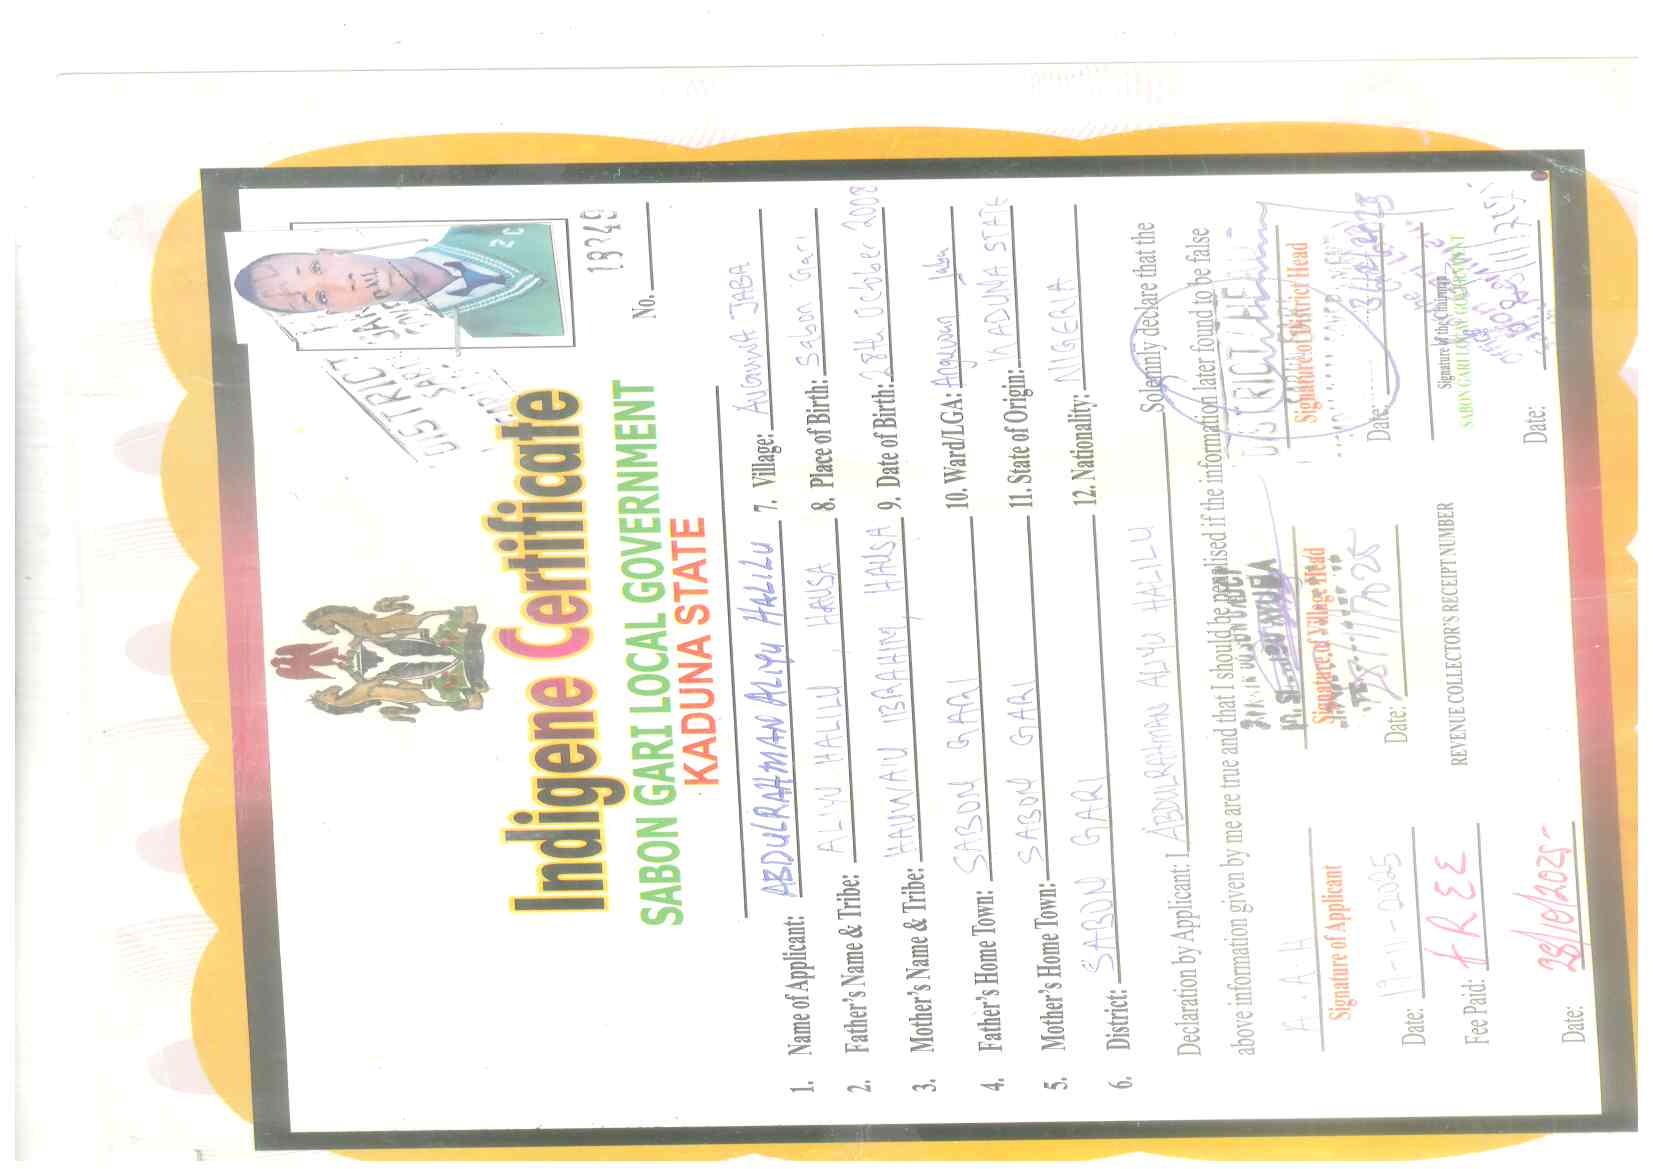 DISTRICT
No. 18349
Indigene Certificate
SABON GARI LOCAL GOVERNMENT
KADUNA STATE
1. Name of Applicant: ABDULRAHMAN ALIYU HALILU
2. Father's Name & Tribe: ALIYU HALILU, HAUSA
3. Mother's Name & Tribe: HAUWA'U IBRAHIM, HAUSA
4. Father's Home Town: SABON GARI
5. Mother's Home Town: SABON GARI
6. District: SABON GARI
7. Village: AUGUWA JABA
8. Place of Birth: Sabon Gari
9. Date of Birth: 28th October 2008
10. Ward/LGA: Anguwan Jaba
11. State of Origin: KADUNA STATE
12. Nationality: NIGERIA
Declaration by Applicant: I ABDULRAHMAN ALIYU HALILU Solemnly declare that the
above information given by me are true and that I should be penalised if the information later found to be false
A.A.H
Signature of Applicant
Date: 17-11-2025
Signature of Village Head
Date:
DISTRICT HEAD
Signature of District Head
Date:
Fee Paid: FREE
REVENUE COLLECTOR'S RECEIPT NUMBER
Signature of the Chairman
SABON GARI LOCAL GOVERNMENT
Date: 28/10/2025
Date: